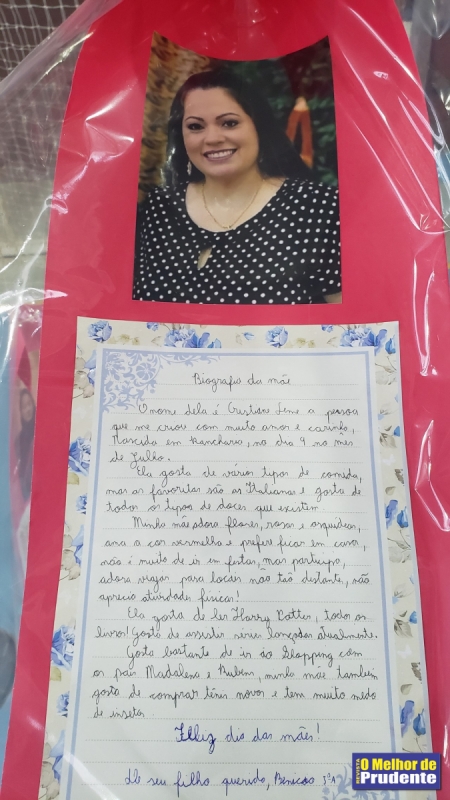 Biografia da mãe
O nome dela é Cristian Leme a pessoa
que me criou com muito amor e carinho,
Nascida em Rancharia, no dia 9 no mês
de Julho.
Ela gosta de vários tipos de comida,
mas as favoritas são as Italianas e gosta de
todos os tipos de doces que existem.
Minha mãe adora flores, rosas e orquídeas,
ama a cor vermelha e prefere ficar em casa,
não é muito de ir em festas, mas participa,
adora viajar para locais não tão distante, não
aprecia atividades físicas!
Ela gosta de ler Harry Potter, todos os
livros! Gosta de assistir séries lançadas atualmente.
Gosta bastante de ir ao Shopping com
os pais Madalena e Rubens, minha mãe também
gosta de comprar tênis novos e tem muito medo
de insetos.
Feliz dia das mães!
Do seu filho querido, 3ºA
REVISTA
O Melhor de
Prudente